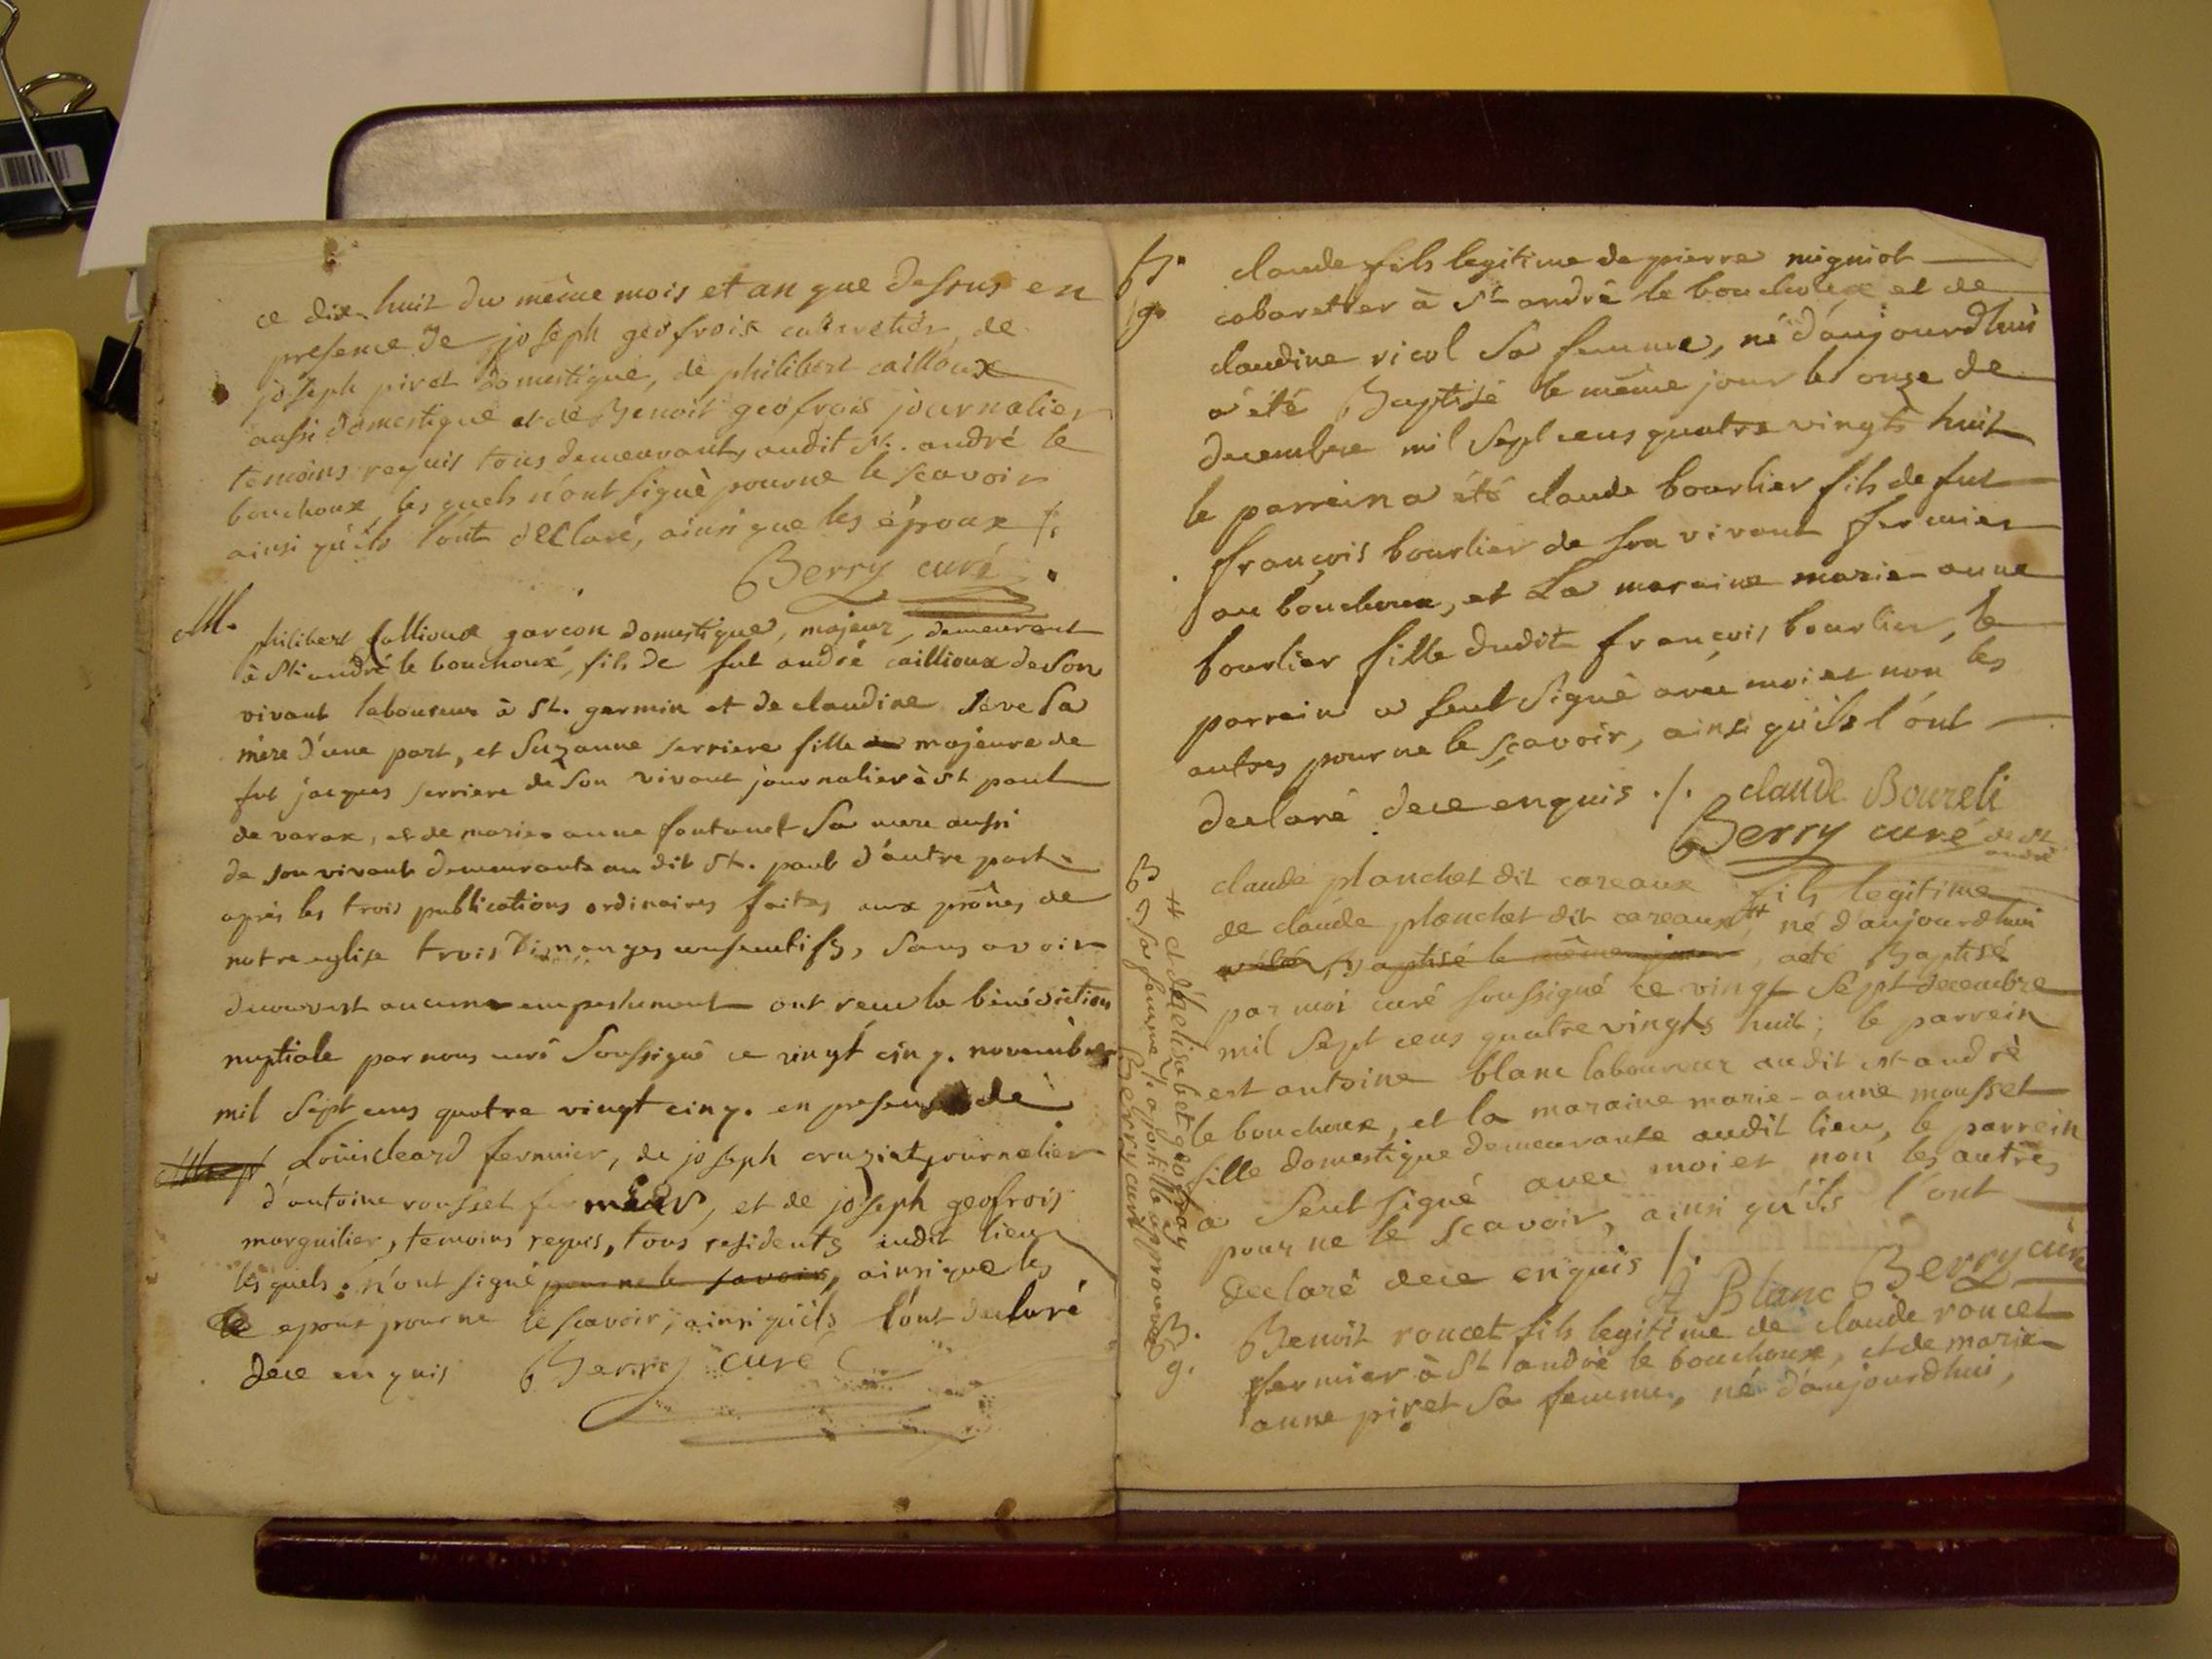 ce dix huit du même mois et an que dessus en
presence de joseph geofrois cabaretier, de
joseph piret domestique, de philibert cailloux
aussi domestique et de Benoit geofrois journalier
temoins requis tous demeurants audit st. andré le
bouchoux, les quels n'ont signè pour ne le scavoir
ainsi qu'ils l'ont declaré, ainsi que les époux /.
Berry curé
M.
philibert callioux garcon domestique, majeur, demeurant
à st. andré le bouchoux, fils de fut andré caillioux de son
vivant laboureur à st. germin et de claudine séve sa
mère d'une part, et suzanne serriere fille majeure de
fut jacques serriere de son vivant journalier à st paul
de varax, et de marie-anne fontanet sa mere aussi
de son vivant demeurante au dit st. paul d'autre part
aprés les trois publications ordinaires faites aux prônes de
notre eglise trois Dimanges consecutifs, sans avoir
decouvert aucune empeshement ont recu la bénédiction
nuptiale par nous curé soussigné ce vingt cinq. novembre
mil sept cens quatre vingt cinq. en presence de
Loüis cleard fermier, de joseph cruziat journalier
d'antoine rousset fermier, et de joseph geofrois
marguilier, temoins requis, tous residents audit lieu
les quels n'ont signé pour ne le savoir, ainsi que les
epoux pour ne le scavoir, ainsi qu'ils l'ont declaré
dece enquis Berry curé
B.
g.
claude fils legitime de pierre migniot
cabaretier à St andrè le bouchoux et de
claudine ricol sa femme, né d'aujourdhui
a été Baptisé le même jour le onze de
decembre mil sept cens quatre vingts huit
le parrein a été claude bourlier fils de fut
françois bourlier de son vivant fermier
au bouchoux, et La maraine marie-anne
bourlier fille dudit françois bourlier, le
parrein a seul signé avec moi et non les
autres pour ne le sçavoir, ainsi qu'ils l'ont
declaré dece enquis ./. claude Boureli
Berry curé de St
andrè
B
g
claude planchet dit careaux fils legitime
de claude planchet dit careaux # né d'aujourdhui
a été Baptisé le même jour, a été Baptisé
par moi curé soussigné ce vingt sept decembre
mil sept cens quatre vingts huit; le parrein
est antoine blanc laboureur audit st andrè
le bouchoux, et la maraine marie-anne mousset
fille domestique demeurante audit lieu, le parrein
a seul signé avec moi et non les autres
pour ne le scavoir, ainsi qu'ils l'ont
declaré dece enquis /.
A Blanc Berry curé
# et d'helisabet geofray
sa femme /. apostille approuvée
Berry curé
B.
g.
Benoit roucet fils legitime de claude roucet
fermier à St andrè le bouchoux, et de marie-
anne piret sa femme, né d'aujourdhui,